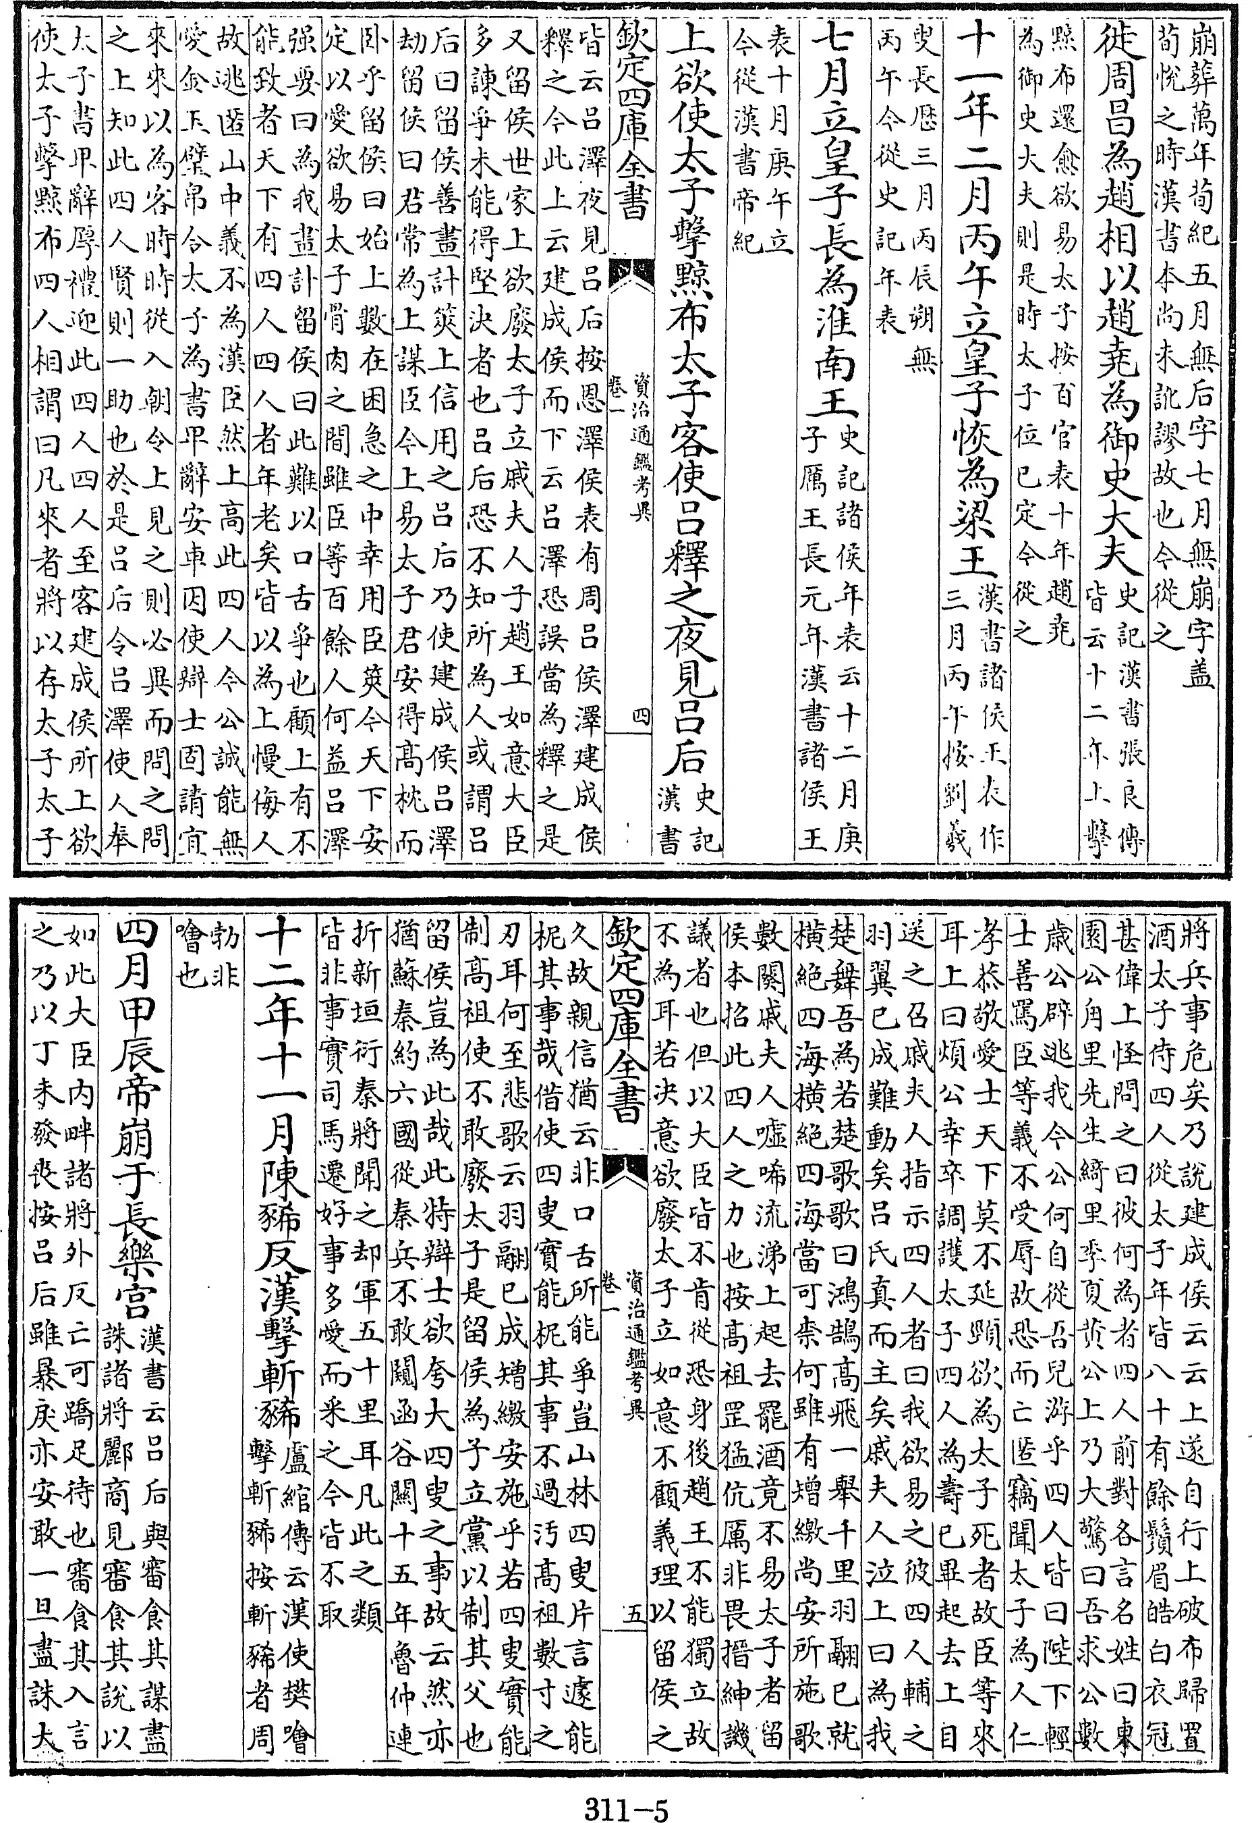 崩葬萬年荀紀五月無后字七月無崩字盖
荀悦之時漢書本尚未訛謬故也今從之
徙周昌為趙相以趙堯為御史大夫
史記漢書張良傳
皆云十二年上擊
黥布還愈欲易太子按百官表十年趙堯
為御史大夫則是時太子位已定今從之
十一年二月丙午立皇子恢為梁王
漢書諸侯王表作
三月丙午按劉羲
叟長歴三月丙辰朔無
丙午今從史記年表
七月立皇子長為淮南王
史記諸侯年表云十二月庚
子厲王長元年漢書諸侯王
表十月庚午立
今從漢書帝紀
上欲使太子擊黥布太子客使吕釋之夜見吕后
史記
漢書
欽定四庫全書
資治通鑑考異
卷一
四
皆云吕澤夜見吕后按恩澤侯表有周吕侯澤建成侯
釋之今此上云建成侯而下云吕澤恐誤當為釋之是
又留侯世家上欲廢太子立戚夫人子趙王如意大臣
多諫爭未能得堅決者也吕后恐不知所為人或謂吕
后曰留侯善畫計筴上信用之吕后乃使建成侯吕澤
劫留侯曰君常為上謀臣今上易太子君安得髙枕而
卧乎留侯曰始上數在困急之中幸用臣筴今天下安
定以愛欲易太子骨肉之間雖臣等百餘人何益吕澤
强要曰為我畫計留侯曰此難以口舌爭也顧上有不
能致者天下有四人四人者年老矣皆以為上慢侮人
故逃匿山中義不為漢臣然上高此四人今公誠能無
愛金玉璧帛令太子為書卑辭安車因使辯士固請宜
來來以為客時時從入朝令上見之則必異而問之問
之上知此四人賢則一助也於是吕后令吕澤使人奉
太子書卑辭厚禮迎此四人四人至客建成侯所上欲
使太子擊黥布四人相謂曰凡來者將以存太子太子
將兵事危矣乃說建成侯云云上遂自行上破布歸置
酒太子侍四人從太子年皆八十有餘鬚眉皓白衣冠
甚偉上怪問之曰彼何為者四人前對各言名姓曰東
園公甪里先生綺里季夏黄公上乃大驚曰吾求公數
歲公辟逃我今公何自從吾兒游乎四人皆曰陛下輕
士善罵臣等義不受辱故恐而亡匿竊聞太子為人仁
孝恭敬愛士天下莫不延頸欲為太子死者故臣等來
耳上曰煩公幸卒調護太子四人為壽已畢起去上目
送之召戚夫人指示四人者曰我欲易之彼四人輔之
羽翼已成難動矣吕氏真而主矣戚夫人泣上曰為我
楚舞吾為若楚歌歌曰鴻鵠高飛一舉千里羽翮已就
橫絕四海橫絕四海當可柰何雖有矰繳尚安所施歌
數闋戚夫人噓唏流涕上起去罷酒竟不易太子者留
侯本招此四人之力也按高祖罡猛伉厲非畏搢紳譏
議者也但以大臣皆不肯從恐身後趙王不能獨立故
不為耳若決意欲廢太子立如意不顧義理以留侯之
欽定四庫全書
資治通鑑考異
卷一
五
久故親信猶云非口舌所能爭豈山林四叟片言遽能
柅其事哉借使四叟實能柅其事不過汚高祖數寸之
刃耳何至悲歌云羽翮已成矰繳安施乎若四叟實能
制高祖使不敢廢太子是留侯為子立黨以制其父也
留侯豈為此哉此特辯士欲夸大四叟之事故云然亦
猶蘇秦約六國從秦兵不敢闚函谷關十五年魯仲連
折新垣衍秦將聞之却軍五十里耳凡此之類
皆非事實司馬遷好事多愛而采之今皆不取
十二年十一月陳豨反漢擊斬豨
盧綰傳云漢使樊噲
擊斬豨按斬豨者周
勃非
噲也
四月甲辰帝崩于長樂宫
漢書云吕后與審食其謀盡
誅諸將酈商見審食其說以
如此大臣内畔諸將外反亡可蹻足待也審食其入言
之乃以丁未發喪按吕后雖暴戾亦安敢一旦盡誅大
311-5